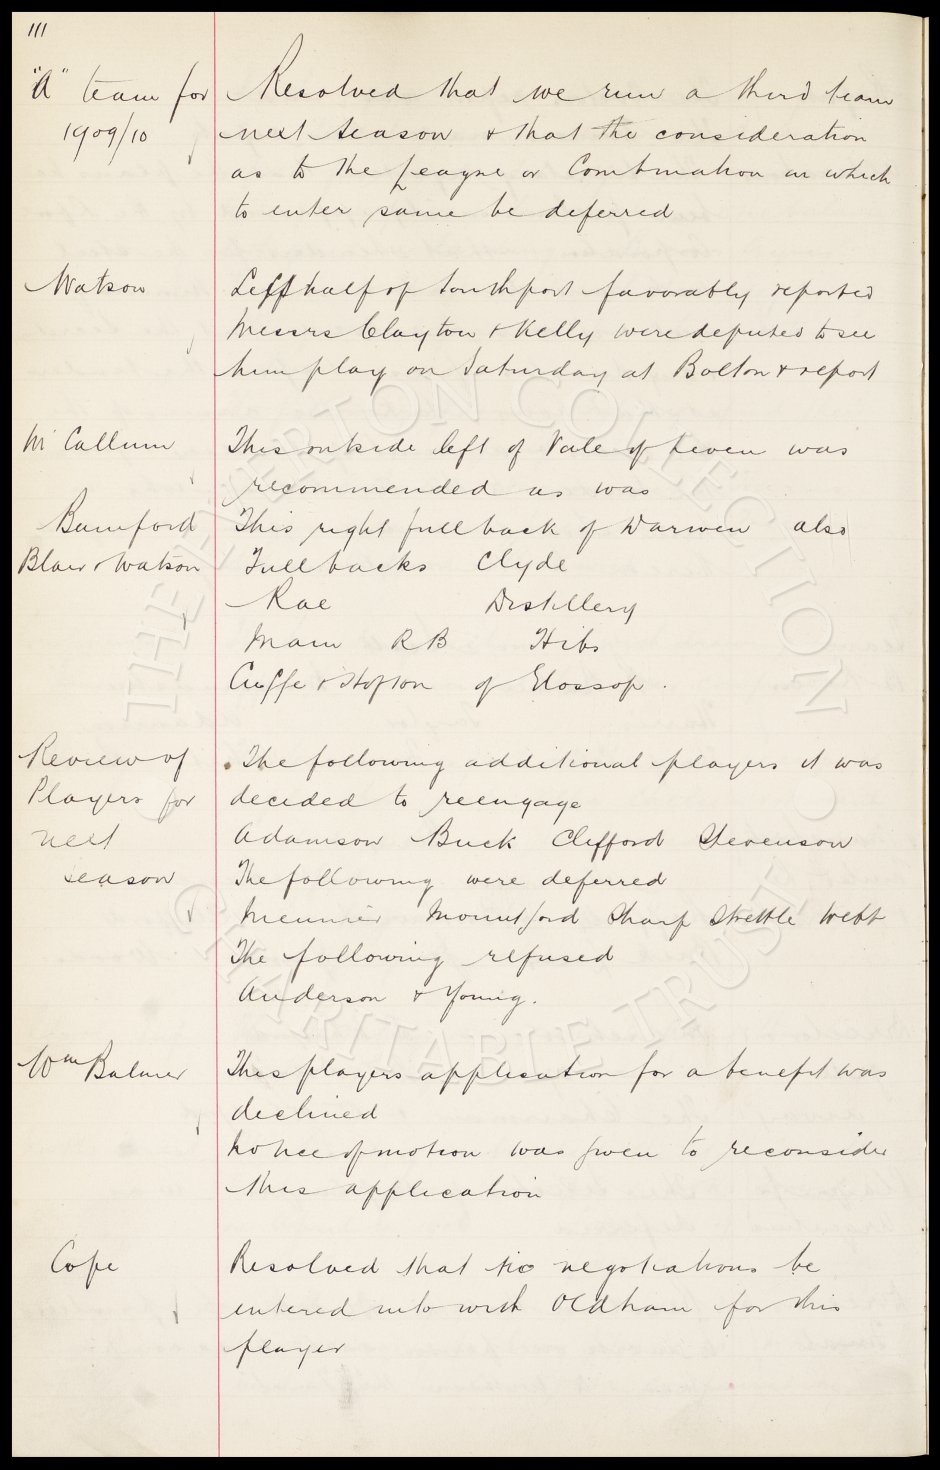 111
"A" team for Resolved that we run a third team
1909/10 next season & that the consideration
as to the League or Combination in which
to enter same be deferred
Watson Left half of Southport favorably reported
Messrs Clayton & Kelly were deputed to see
him play on Saturday at Bolton & report
McCallum This outside left of Vale of Leven was
recommended as was
Bamford This right full back of Darwen also
Blair & Watson Fullbacks Clyde
Rae Distillery
Main RB Hibs
Cuffe & Hofton of Glossop.
Review of The following additional players it was
Players for decided to reengage
next Adamson Buck Clifford Stevenson
season The following were deferred
Meunier Mountford Sharp Strettle Webb
The following refused
Anderson & Young.
Wm Balmer This players application for a benefit was
declined
Notice of motion was given to reconsider
this application
Cope Resolved that no negotiations be
entered into with Oldham for this
player
THE EVERTON COLLECTION CHARITABLE TRUST